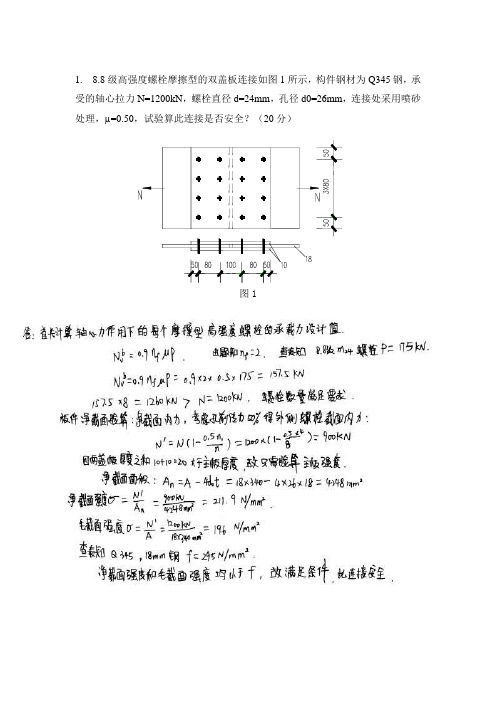 1. 8.8级高强度螺栓摩擦型的双盖板连接如图1所示，构件钢材为Q345钢，承
受的轴心拉力N=1200kN，螺栓直径d=24mm，孔径d0=26mm，连接处采用喷砂
处理，μ=0.50，试验算此连接是否安全？（20分）
50
3X80
50
N
N
18
50 80 100 80 50 10
图1
答: 首先计算轴心力作用下的每个摩擦型高强度螺栓的承载力设计值.
N_v^b = 0.9 n_f μP. n_f=2. 8.8级 M24 螺栓 P=175kN.
N_v^b=0.9 n_f μP = 0.9×2×0.5×175 = 157.5 kN
157.5×8 = 1260kN > N=1200kN. 螺栓数量能满足要求.
N' = N(1-0.5n_1/n) = 1200×(1-0.5×4/8) = 900kN
10+10=20 大于主板厚度, 故只需验算主板强度.
净截面面积: A_n = A - 4d_0t = 18×340 - 4×26×18 = 4248mm²
净截面强度σ = N'/A_n = 900kN/4248mm² = 211.9 N/mm².
毛截面强度σ = N'/A = 1200kN/18×340mm² = 196 N/mm²
查表知 Q345, 18mm 钢 f=295N/mm².
净截面强度和毛截面强度均小于f, 故满足条件, 此连接安全.